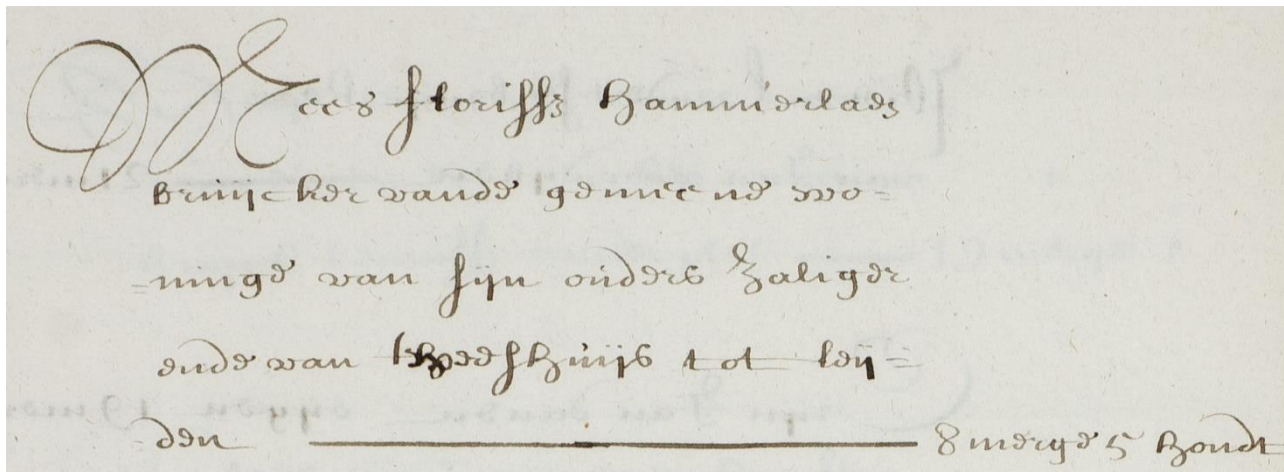 Cees florissz hammerlaez
bruijcker vande gemeene wo=
=ninge van sijn ouders zaliger
ende van tweeshuijs tot leij=
=den 8 merge 5 hondt